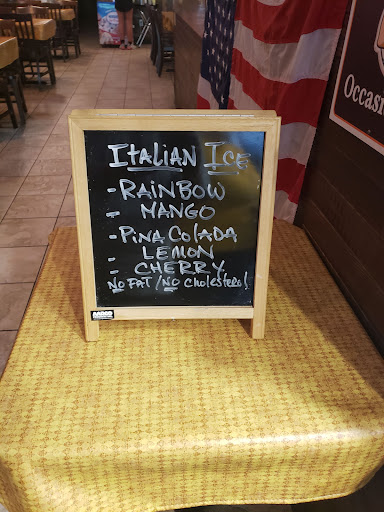 ITALIAN ICE
- RAINBOW
- MANGO
- PINA COLADA
- LEMON
- CHERRY
NO FAT / NO cholesterol!
Occasi